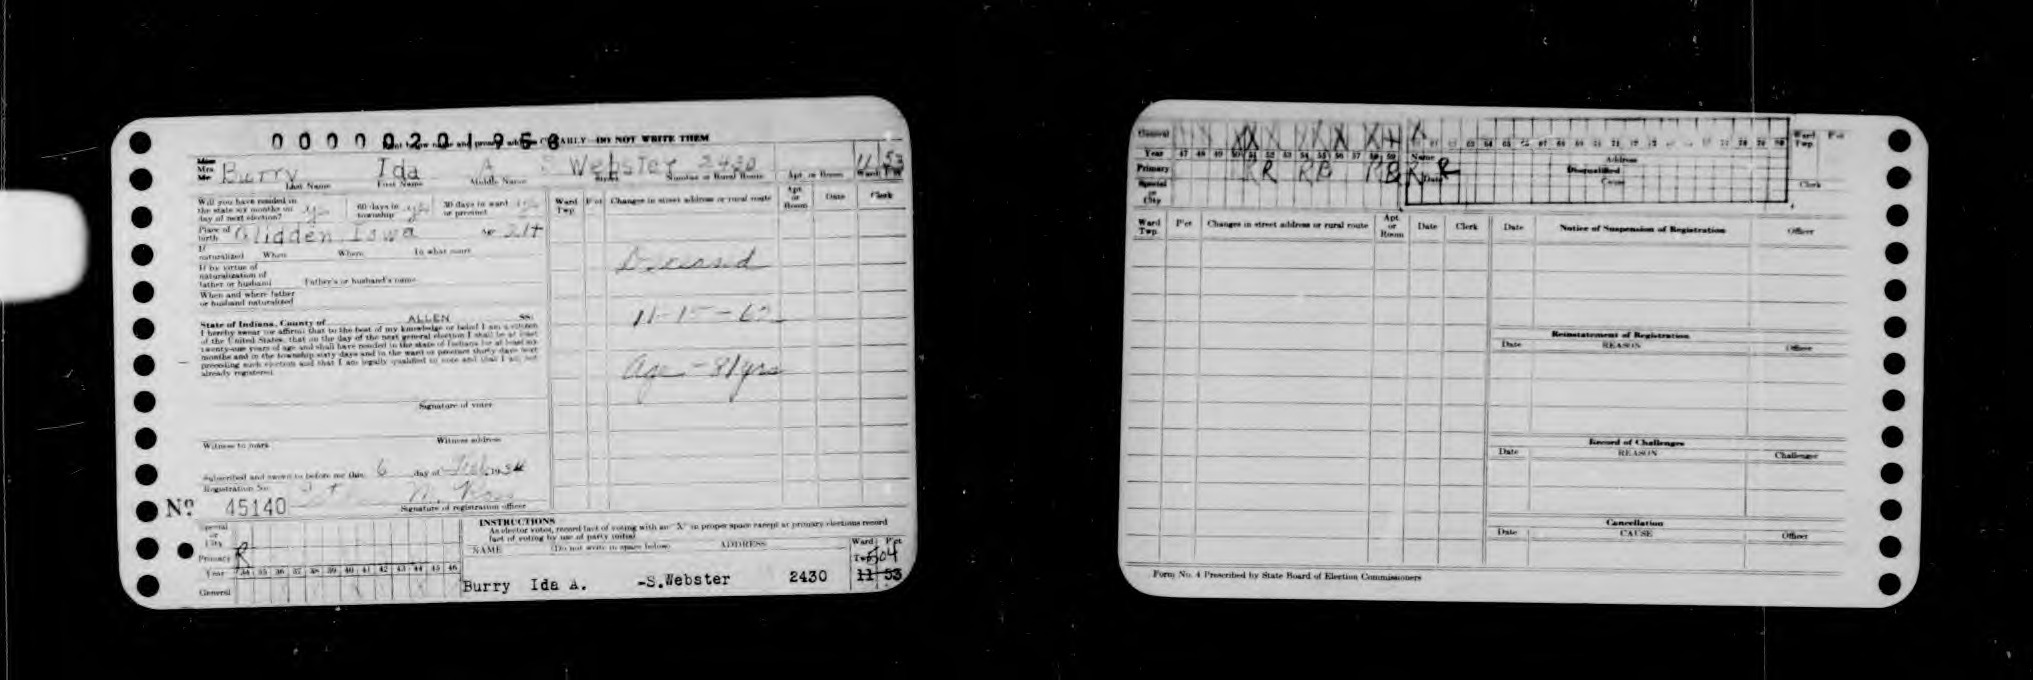 0 0 0 0 0 2 0 1 9 5 8
DO NOT WRITE THEM
Mrs. Burry Ida A S Webster 2430 11 53
Last Name First Name Middle Name Street Number or Rural Route Apt. or Room Ward
Will you have resided in the state six months on day of next election? yes 60 days in township yes 30 days in ward or precinct yes
Place of birth Glidden Iowa 21+
If naturalized When Where In what court
If by virtue of naturalization of father or husband Father's or husband's name
When and where father or husband naturalized
State of Indiana, County of ALLEN SS:
I hereby swear (or affirm) that to the best of my knowledge or belief I am a citizen
of the United States, that on the day of the next general election I shall be at least
twenty-one years of age and shall have resided in the state of Indiana for at least six
months and in the township sixty days and in the ward or precinct thirty days next
preceding such election and that I am legally qualified to vote and that I am not
already registered.
Signature of voter
Witness to mark Witness address
Subscribed and sworn to before me this 6 day of Feb. 1934
Registration No.
Nº 45140
Signature of registration officer
Ward Twp. P'ct Changes in street address or rural route Apt. or Room Date Clerk
Deceased
11-15-62
Age - 81 yrs
Special or City
Primary R
Year 34 35 36 37 38 39 40 41 42 43 44 45 46
General
INSTRUCTIONS
As elector votes, record fact of voting with an "X" in proper space except at primary elections record
fact of voting by use of party initial
NAME (Do not write in space below) ADDRESS Ward Twp. P'ct
504
Burry Ida A. -S.Webster 2430 11 53
General
Year 47 48 49 50 51 52 53 54 55 56 57 58 59
Primary R R R R R R R
Special or City
Name Address
Date Disqualified
Cause
Ward Twp. P'ct
Clerk
Ward Twp. P'ct Changes in street address or rural route Apt. or Room Date Clerk Date Notice of Suspension of Registration Officer
Reinstatement of Registration
Date REASON Officer
Record of Challenges
Date REASON Challenger
Cancellation
Date CAUSE Officer
Form No. 4 Prescribed by State Board of Election Commissioners